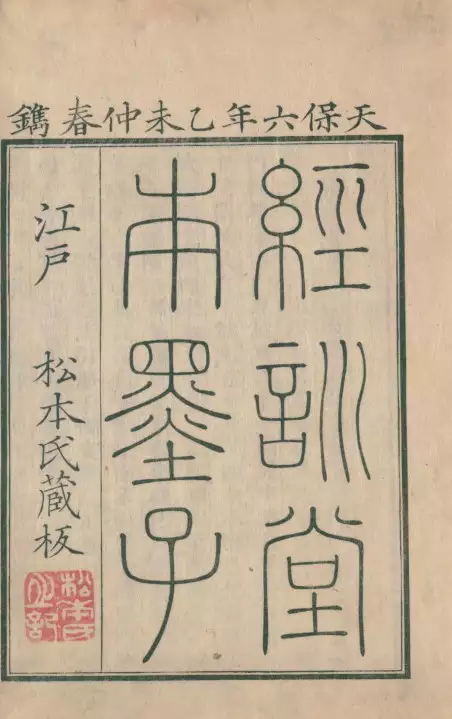 天保六年乙未仲春鐫
經訓堂
本墨子
江戸 松本氏蔵板